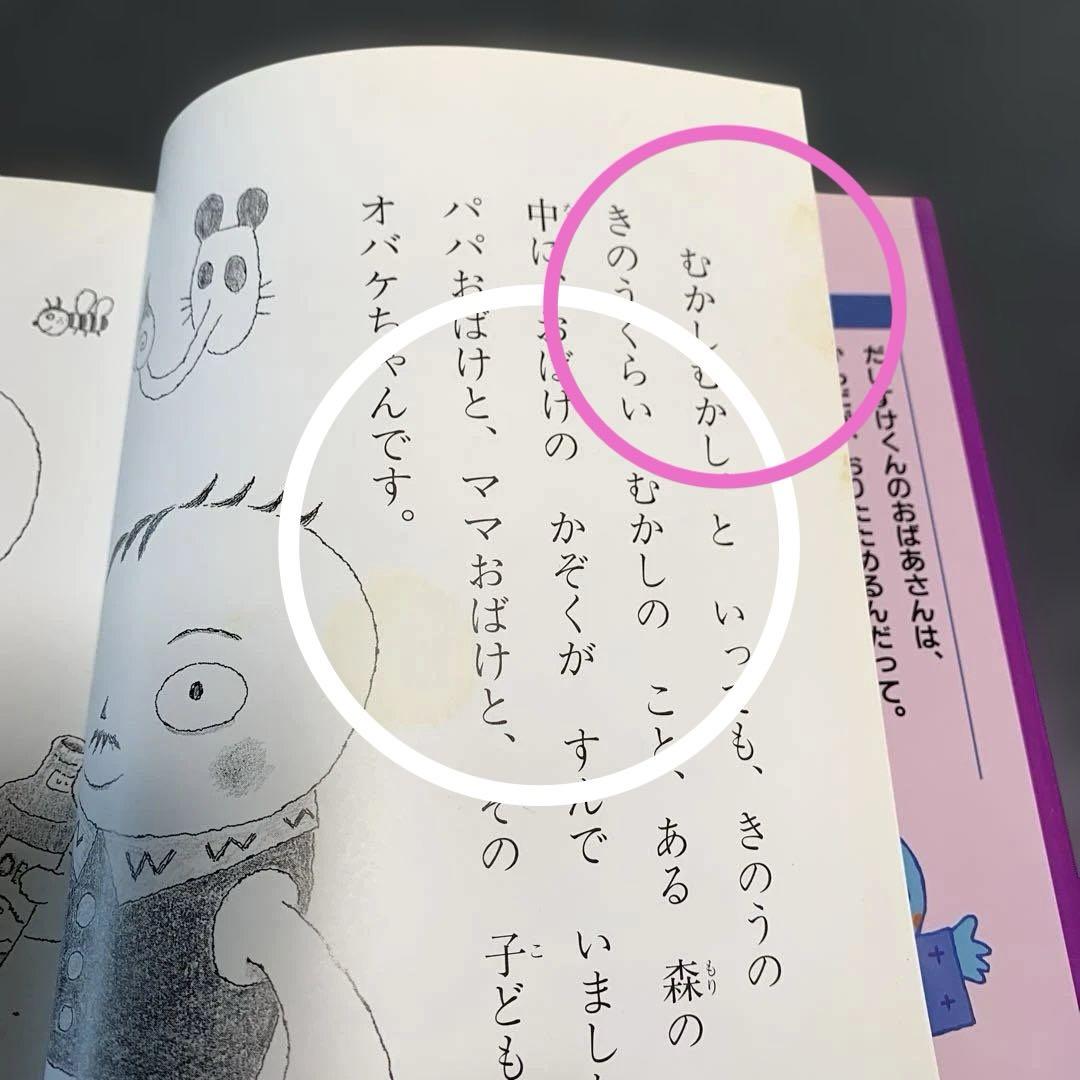 むかしむかし、と いっても、きのうの
きのうくらい むかしの こと、ある 森の
中に、おばけの かぞくが すんで いました
パパおばけと、ママおばけと、その 子ども
オバケちゃんです。
だいすけくんのおばあさんは、
おりこためるんだって。